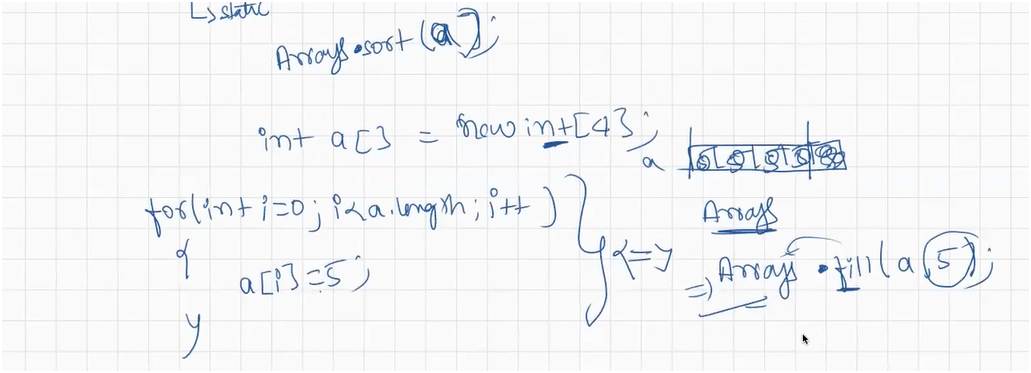 ↳ static
Arrays.sort(a);
int a[] = new int[4];
a 5 5 5 5
for(int i=0; i<a.length; i++)
{
a[i]=5;
}
<=>
Arrays
=> Arrays.fill(a,5);